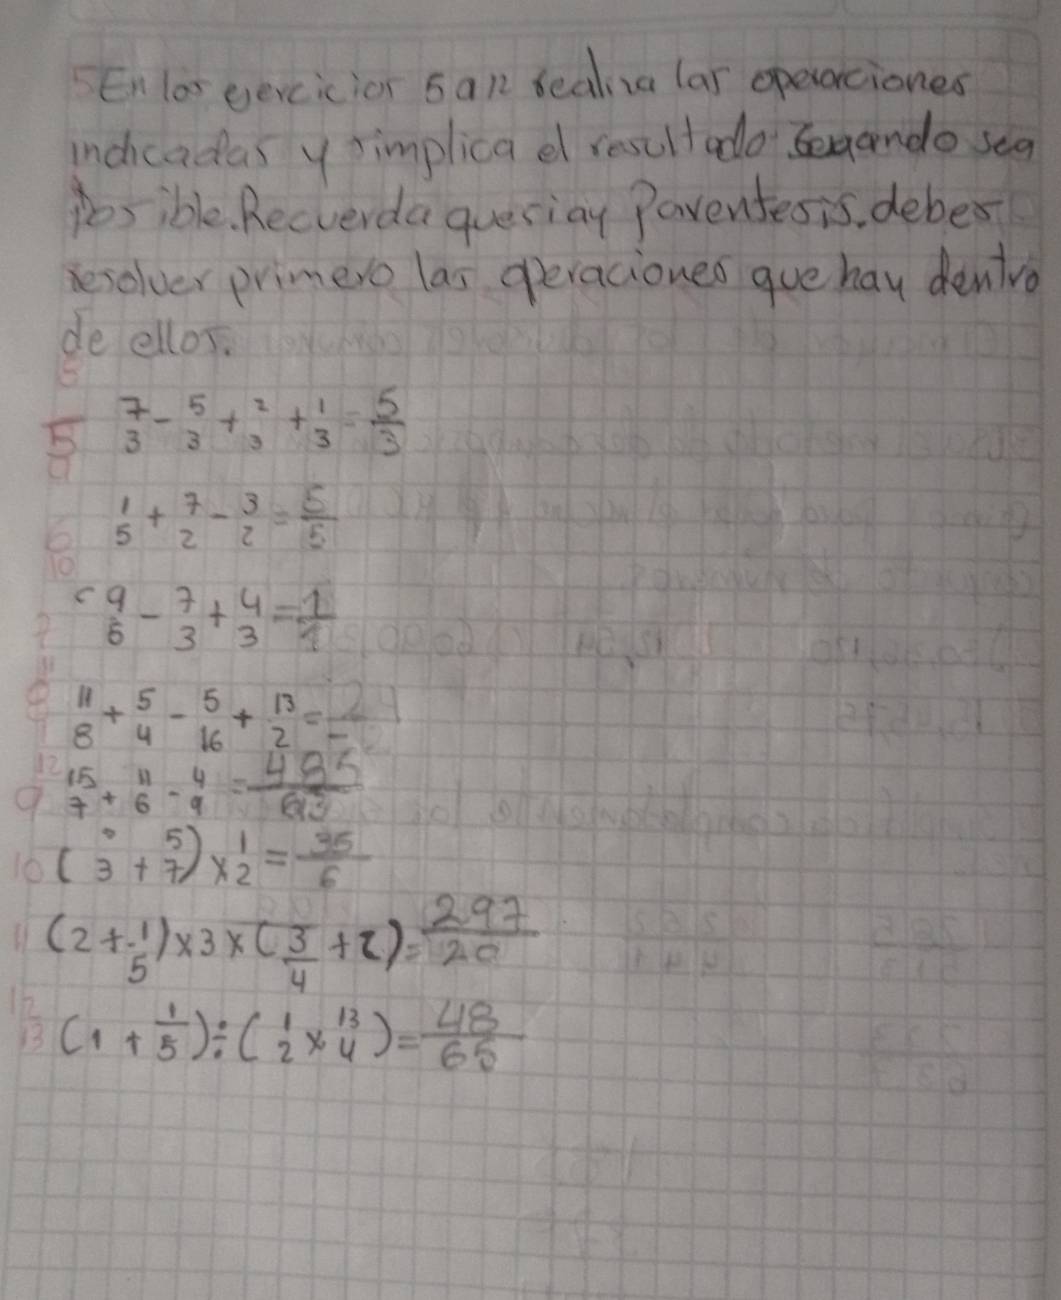 5 En los ejercicios 5 a 12 realiza las operaciones
indicadas y simplica el resultado cuando sea
posible. Recuerda que si ay Parentesis. debes
resolver primero las operaciones que hay dentro
de ellos.
5 7/3 - 5/3 + 2/3 + 1/3 = 5/3
6 1/5 + 7/2 - 3/2 = 5/5
7 9/6 - 7/3 + 4/3 = 1/1
8 11/8 + 5/4 - 5/16 + 13/2 =
9 15/7 + 11/6 - 4/9 = 485/63
10 ( /3 + 5/7) x 1/2 = 35/6
11 (2 + 1/5) x 3 x (3/4 + 2) = 297/20
12 13 (1 + 1/5) ÷ (1/2 x 13/4) = 48/65